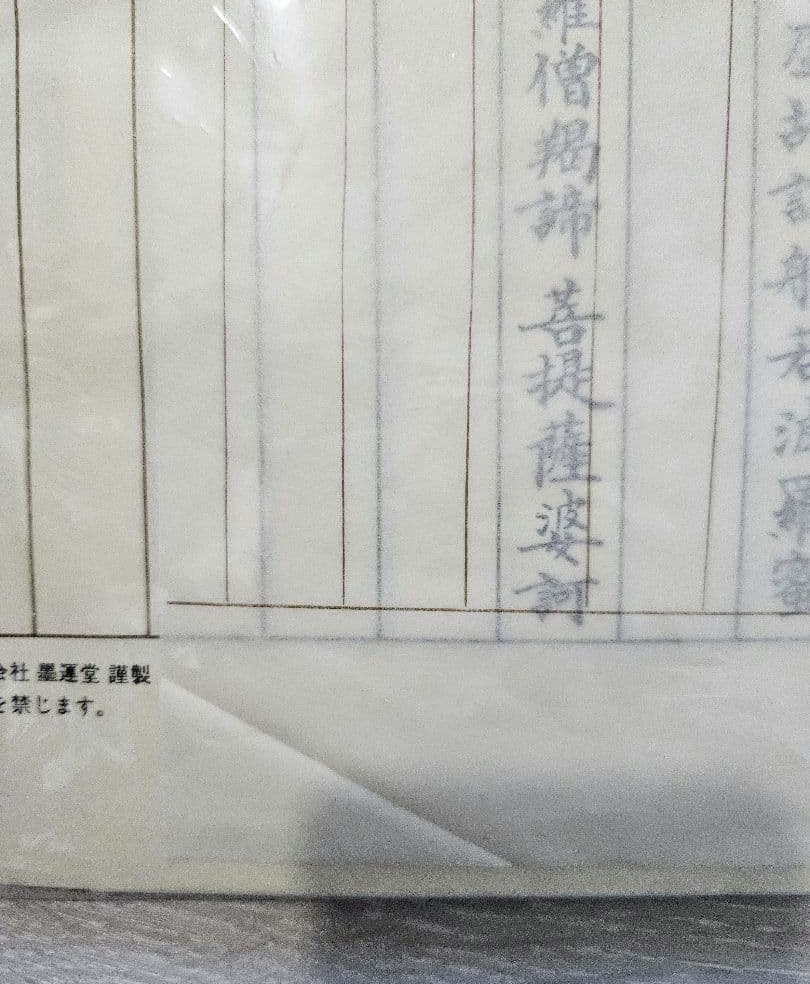 虚故説般若波羅蜜
羅僧羯諦 菩提薩婆訶
会社 墨運堂 謹製
を禁じます。